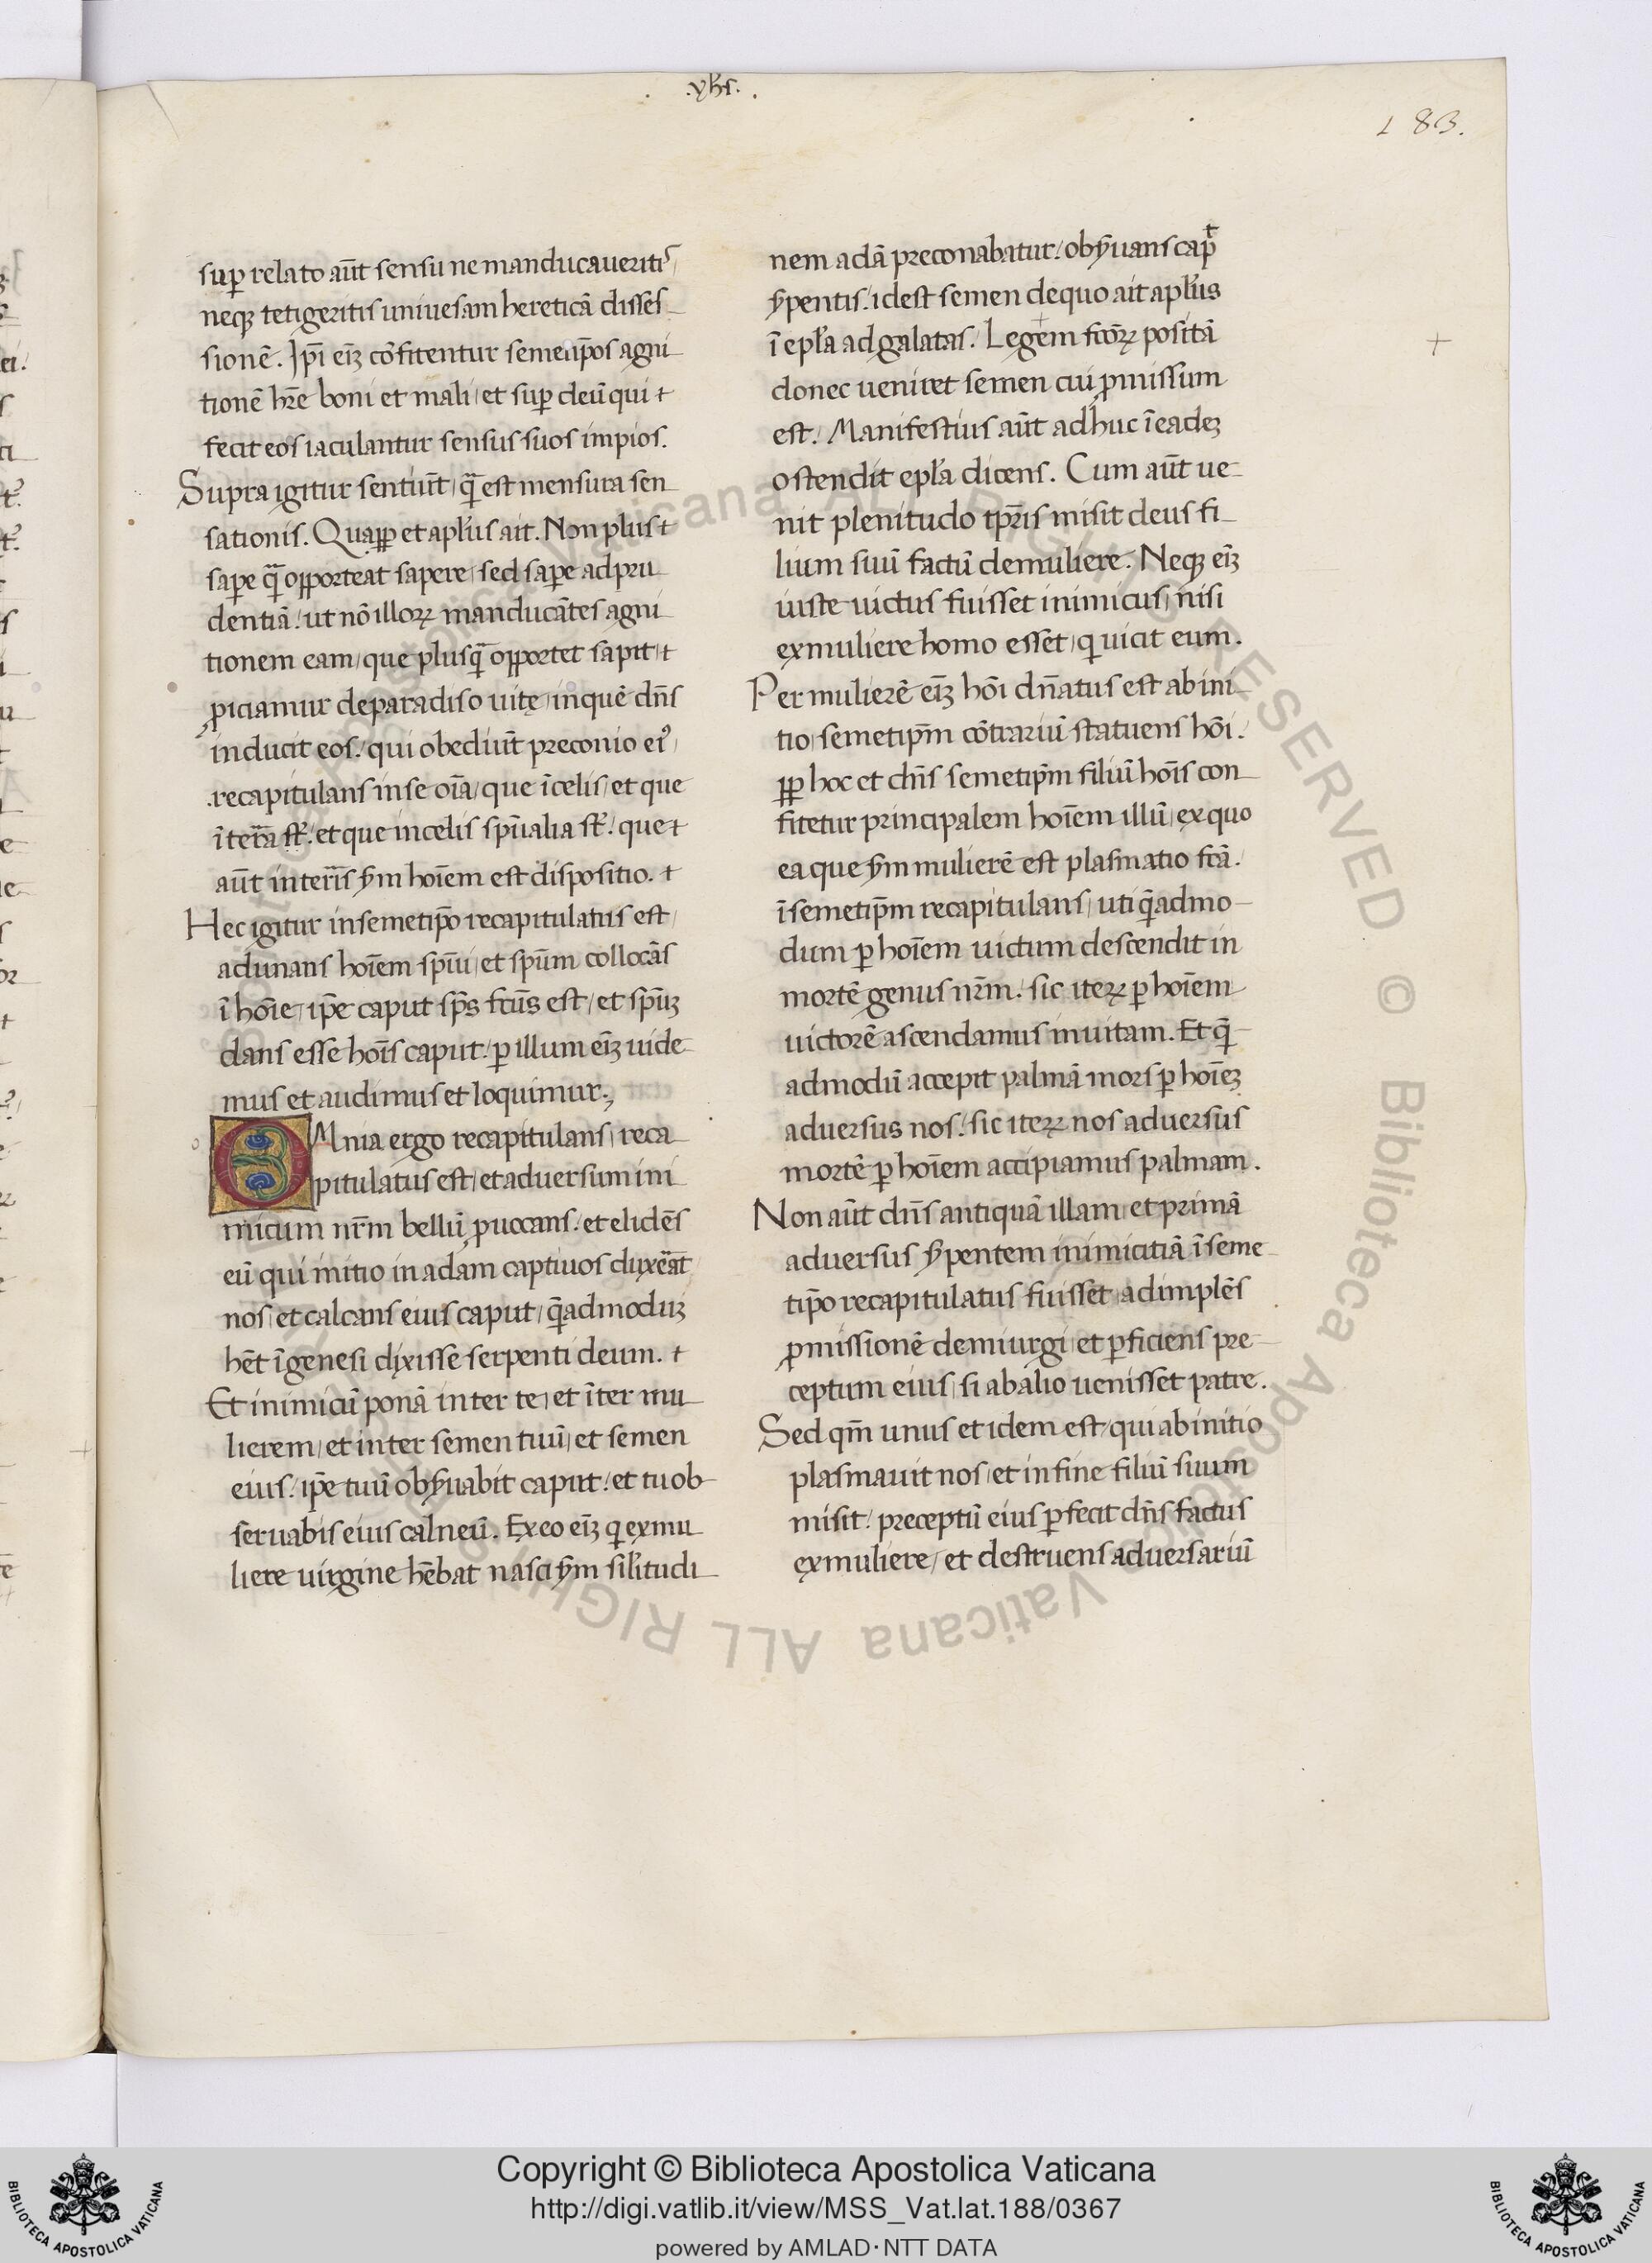 .yhs.
183.
sup relato aūt sensu ne manducaueritis
neq; tetigeritis uniuesam hereticā disses
sionē. Ipī eīz cōfitentur semetipos agni
tionē hr̄e boni et mali et sup deū qui
fecit eos iaculantur sensus suos impios.
Supra igitur sentiūt q̄ est mensura sen
sationis. Quapp et aplūs ait. Non plus
sape q̄ opporteat sapere sed sape ad pru
dentiā. ut nō illorꝝ manducātes agni
tionem eam que plusq̄ opportet sapit
piciamur de paradiso uitę in quē dn̄s
inducit eos. qui obediūt preconio ei⁹
recapitulans in se oīa que ī celis et que
ī terra st̄. et que in celis spūalia st̄. que
aūt in terris ẏm hoīem est dispositio.
Hec igitur in semetip̄o recapitulatus est
adunans hoīem spūi et spūm collocās
ī hoīe ip̄e caput sp̄s fcūs est et spūz
dans esse hoīs caput. p illum eīz uide
mus et audimus et loquimur.
OMnia ergo recapitulans reca
pitulatus est et aduersum ini
micum nr̄m bellū puocans. et elidēs
eū qui initio in adam captiuos duxēat
nos et calcans eius caput q̄admoduz
hēt ī genesi dixisse serpenti deum.
Et inimiciā ponā inter te et īter mu
lierem et inter semen tuū et semen
eius. ip̄e tuū obẏuabit caput. et tu ob
seruabis eius calneū. Ex eo eīz q ex mu
liere uirgine hēbat nasci ẏm silitudi
nem adā preconabatur. obẏuans cap̄t
ẏpentis. id est semen de quo ait aplūs
ī epl̄a ad galatas. Legem fcōrꝝ positā
donec ueniret semen cui pmissum
est. Manifestius aūt adhuc ī eadez
ostendit epl̄a dicens. Cum aūt ue
nit plenitudo tpr̄is misit deus fi
lium suū factū de muliere. Neq; eīz
iuste uictus fuisset inimicus nisi
ex muliere homo esset q uicit eum.
Per mulierē eīz hōi dn̄atus est ab ini
tio semetip̄m cōtrariū statuens hōi.
pp hoc et dn̄s semetip̄m filiū hoīs con
fitetur principalem hoīem illū ex quo
ea que ẏm mulierē est plasmatio fcā.
ī semetip̄m recapitulans uti q̄admo
dum p hoīem uictum descendit in
mortē genus nr̄m. sic iterꝝ p hoīem
uictorē ascendamus in uitam. Et q̄
admodū accepit palmā mors p hoīez
aduersus nos. sic iterꝝ nos aduersus
mortē p hoīem accipiamus palmam.
Non aūt dn̄s antiquā illam et primā
aduersus ẏpentem inimicitiā ī seme
tip̄o recapitulatus fuisset adimplēs
pmissionē demiurgi et pficiens pre
ceptum eius si ab alio uenisset patre.
Sed qm̄ unus et idem est qui ab initio
plasmauit nos et in fine filiū suum
misit. preceptū eius pfecit dn̄s factus
ex muliere et destruens aduersariū
Biblioteca Apostolica Vaticana ALL RIGHTS RESERVED ©
Copyright © Biblioteca Apostolica Vaticana
http://digi.vatlib.it/view/MSS_Vat.lat.188/0367
powered by AMLAD·NTT DATA
BIBLIOTECA APOSTOLICA VATICANA
BIBLIOTECA APOSTOLICA VATICANA